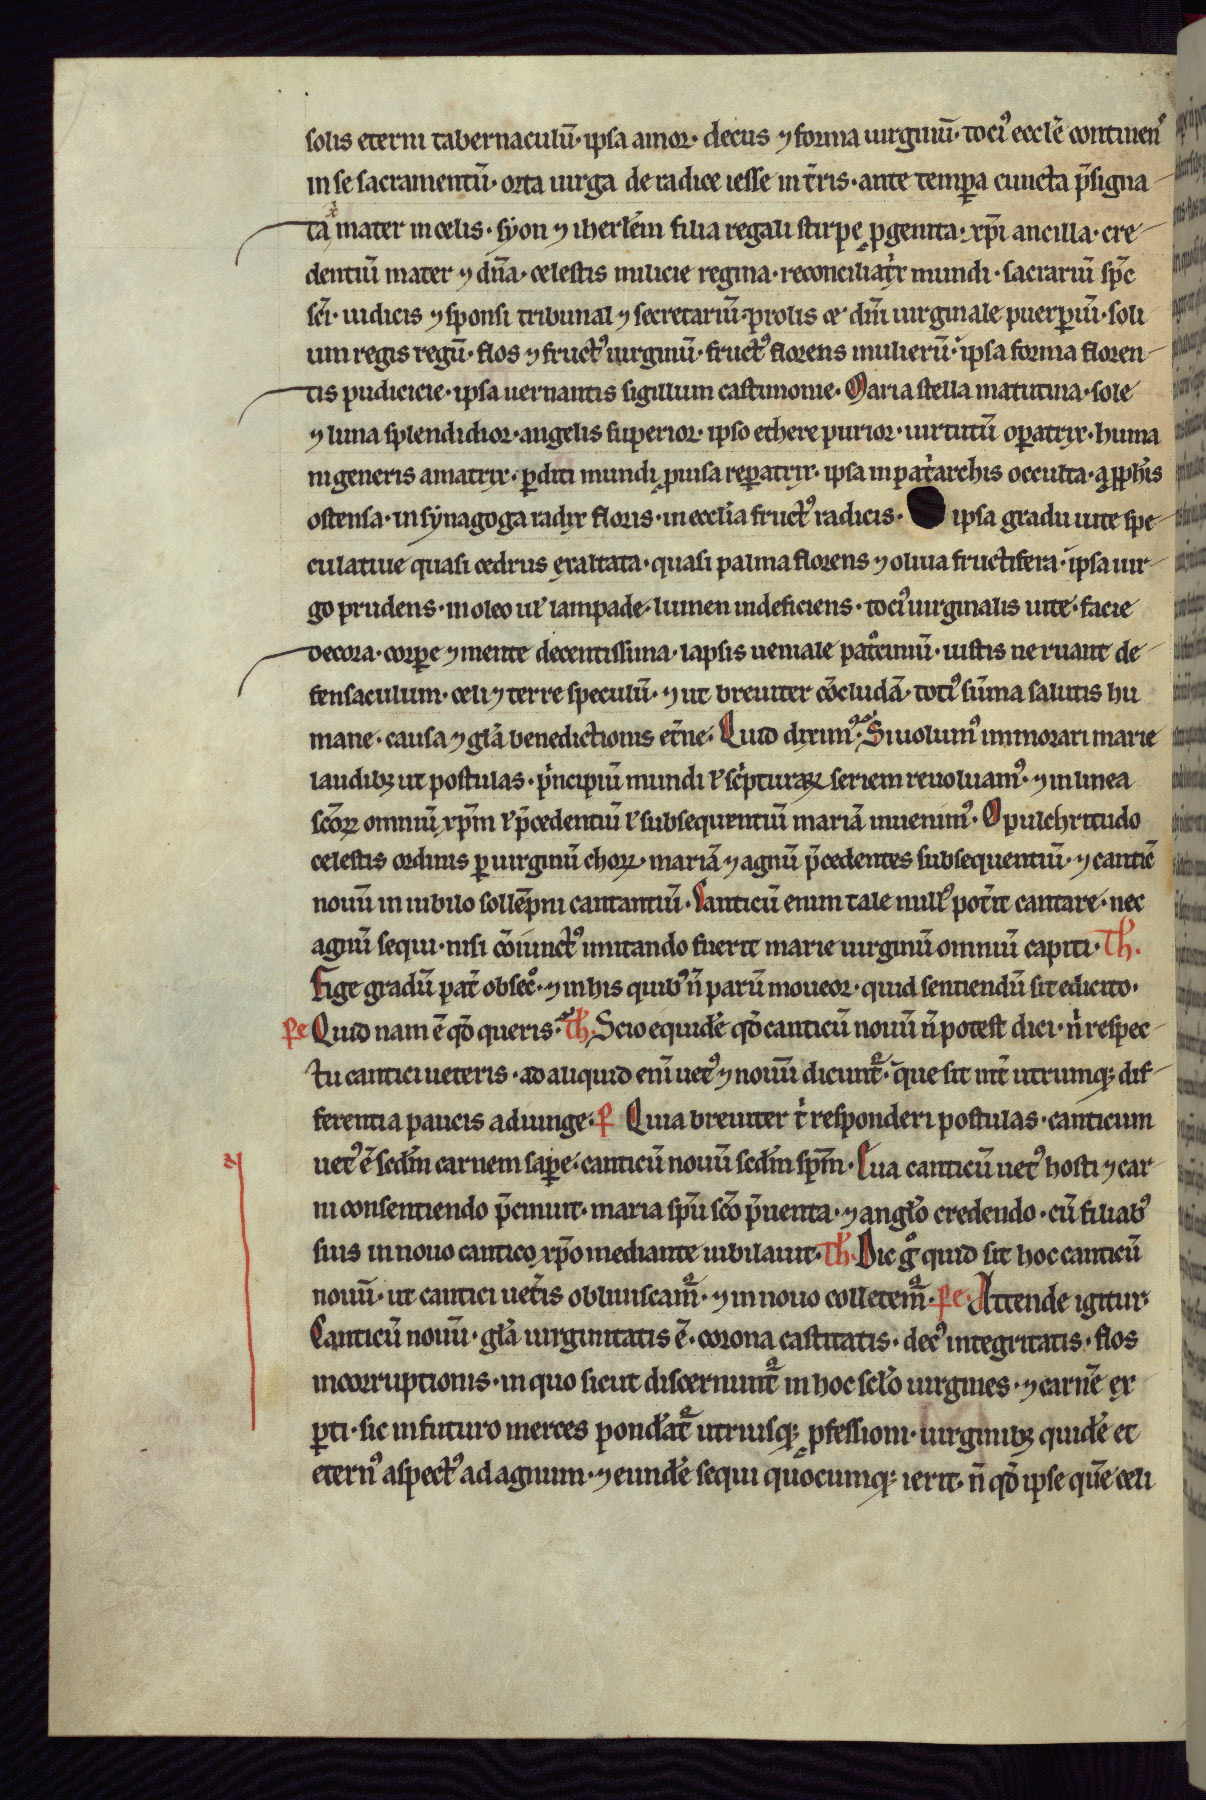 solis eterni tabernaculū· ipsa amor· decus ⁊ forma uirginū· tociꝰ ecclē continenˀ
in se sacramentū· orta uirga de radice iesse in t̄ris· ante temꝑa cuncta p̄signa
ta mater in celis· syon ⁊ iherlēm filia regali stirpe ꝓgenita· xp̄i ancilla· cre
dentiū mater ⁊ dn̄a· celestis milicie regina· reconciliat͛x mundi· sacrariū sp̄c
sc̄i· iudicis ⁊ sponsi tribunal ⁊ secretariū· prolis de dīm uirginale puerꝑiū· soli
um regis regū· flos ⁊ fructꝰ uirginū· fructꝰ florens mulierū· ipsa forma floren
tis pudicicie· ipsa uernantis sigillum castimonie· Maria stella matutina· sole
⁊ luna splendidior· angelis superior· ipso ethere purior· uirtutū oꝑatrix· huma
ni generis amatrix· ꝑditi mundi ꝓuisa reꝑatrix· ipsa in pat͛archis occulta· a ꝓph̄is
ostensa· in synagoga radix floris· in eccl̄ia fructꝰ radicis· ipsa gradu uite spe
culatiue quasi cedrus exaltata· quasi palma florens ⁊ oliua fructifera· ipsa uir
go prudens· in oleo ul̄ lampade· lumen indeficiens· tociꝰ uirginalis uite· facie
decora· corꝑe ⁊ mente decentissima· lapsis ueniale pat°ciniū· iustis ne ruant de
fensaculum· celi ⁊ terre speculū· ⁊ ut breuiter cōcludā· totiꝰ sūma salutis hu
mane· causa ⁊ gl̄a benedictionis et̄ne· Quid diximꝰ· Si uolumꝰ immorari marie
laudibꝫ ut postulas· p͛ncipiū mundi ł sc͛pturaꝝ seriem reuoluamꝰ· ⁊ in linea
sc̄oꝝ omniū xp̄m ł p̄cedentiū ł subsequentiū mariā inuenimꝰ· O pulchritudo
celestis ordinis ꝑ uirginū choꝝ· mariā ⁊ agnū p̄cedentes subsequentiū· ⁊ cantic̄
nouū in iubilo sollēpni cantantiū· Canticū enim tale nullꝰ pot̄it cantare· nec
agnū sequi· nisi cōiunctꝰ imitando fuerit marie uirginū omniū capiti· Th̄·
Fige gradū pat̄ obsec°· ⁊ in his quibꝰ n̄ parū moueor· quid sentiendū sit edicito·
Pe Quid nam ē qd̄ queris· Th̄· Scio equidē qd̄ canticū nouū n̄ potest dici· n͛ respec
tu cantici ueteris· ad aliquid eni̅ uetꝰ ⁊ nouū dicunt᷑· que sit int̄ utrumqꝫ dif
ferentia paucis adiunge· P Quia breuiter t͛ responderi postulas· canticum
uetꝰ ē scd̄m carnem saꝑe· canticū nouū scd̄m sp̄m· Eua canticū uetꝰ hosti ⁊ car
ni consentiendo p̄cinuit· maria sp̄u sc̄o p̄uenta· ⁊ angl̄o credendo· cū filiabꝰ
suis in nouo cantico xp̄o mediante iubilauit· Th̄· Dic g° quid sit hoc canticū
nouū· ut cantici uet̄is obliuiscam᷑· ⁊ in nouo colletem᷑· Pe· Attende igitur·
Canticū nouū· gl̄a uirginitatis ē· corona castitatis· decꝰ integritatis· flos
incorruptionis· in quo sicut discernunt᷑ in hoc scl̄o uirgines· ⁊ carnē ex
ꝑti· sic in futuro merces pondāt᷑ utriusqꝫ ꝓfessioni· uirginibꝫ quidē et
eternꝰ aspectꝰ ad agnum· ⁊ eundē sequi quocumqꝫ ierit· n̄ qd̄ ipse quē celi